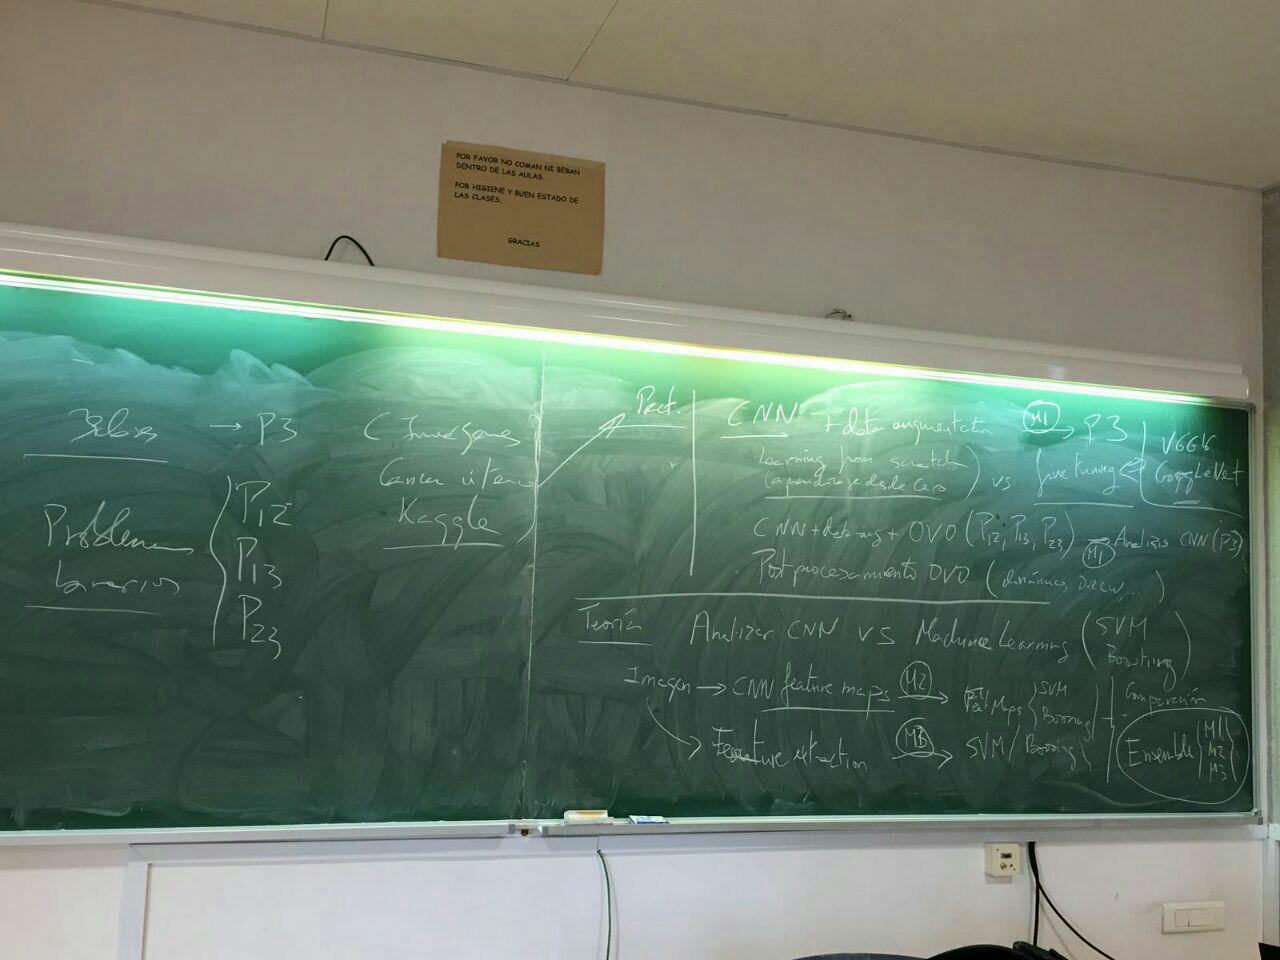 POR FAVOR NO COMAN NI BEBAN
DENTRO DE LAS AULAS.
POR HIGIENE Y BUEN ESTADO DE
LAS CLASES.
GRACIAS
3 clases → P3
Problemas
binarios
P12
P13
P23
( Imágenes
Cancer útero
Kaggle )
Pract.
CNN + data augmentation M1 → P3
Learning from scratch
(aprendizaje desde cero) vs fine tuning
VGG16
GoogLeNet
CNN + data aug + OVO (P12, P13, P23) → M1 Analizis CNN (P3)
Postprocesamiento OVO (dinámico, DRCW, ...)
Teoría Analizar CNN VS Machine Learning (SVM
Boosting)
Imagen → CNN feature maps M2 → Feat Maps { SVM
Boosting
Comparación
→ Feature extraction M3 → SVM/Boosting
Ensemble { M1
M2
M3 }